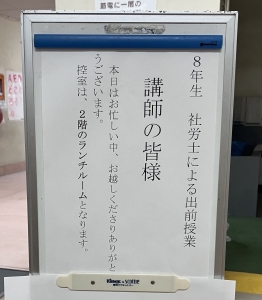 節電に一層の
8年生　社労士による出前授業
講師の皆様
本日はお忙しい中、お越しくださりありがと
うございます。
控室は、2階のランチルームとなります。